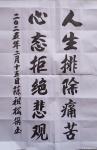 人生排除痛苦
心态拒绝悲观
二〇二五年二月十五日陈祖松撰书